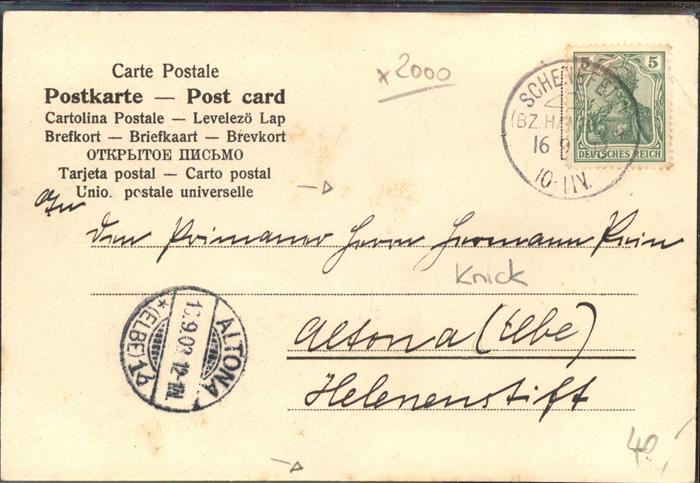 Carte Postale
Postkarte — Post card
Cartolina Postale — Levelező Lap
Brefkort — Briefkaart — Brevkort
ОТКРЫТОЕ ПИСЬМО
Tarjeta postal — Carto postal
Unio. postale universelle
x 2000
5
DEUTSCHES REICH
SCHENEFELD
(BZ.HA
16 9
10-11V.
An
den Primaner Herrn Hermann Prein
Knick
Altona (Elbe)
Helenenstift
ALTONA
*(ELBE) 1b
9.03. 12-1N
40,-